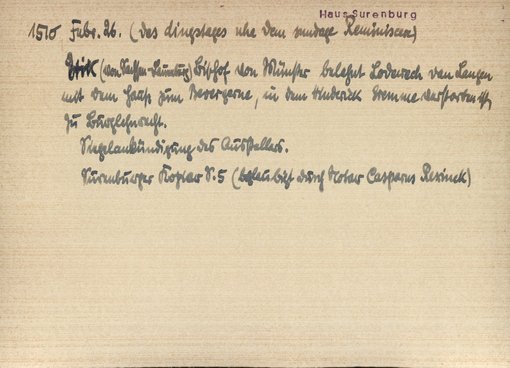 Haus Surenburg
1510 Febr. 26. (des dingstages nhe dem sundage Reminiscere)
Erik (von Sachsen-Lauenburg) Bischof von Münster belehnt Lodewech van Langen
mit dem Hause zum Bevergerne, in dem Hinderick Gremme verstorben ist,
zu Burglehnrecht.
Siegelankündigung des Ausstellers.
Surenburger Kopiar S. 5 (beglaubigt durch Notar Casparus Rexinck)